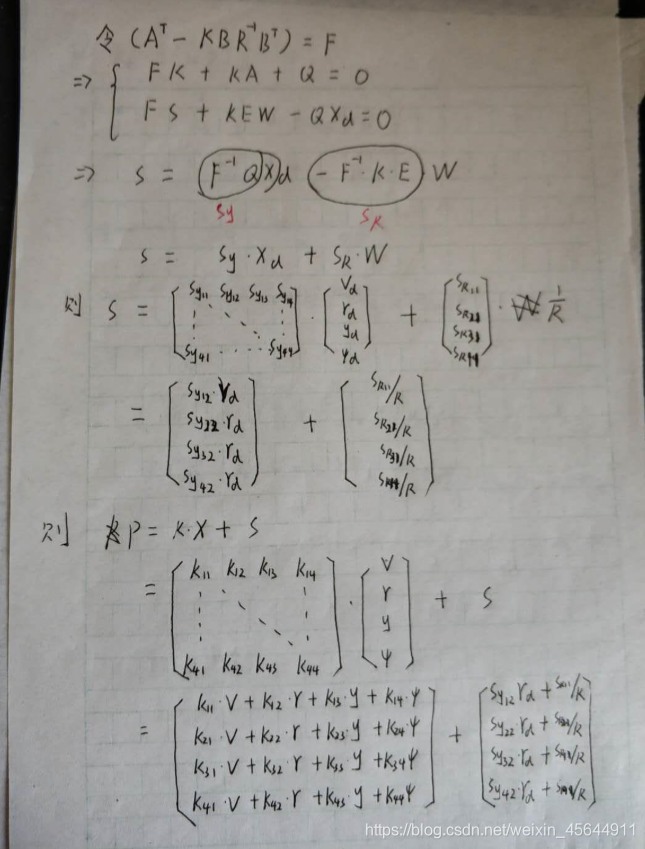 令 (Aᵀ - KBR⁻¹Bᵀ) = F
⇒ { FK + KA + Q = 0
FS + KEW - QXd = 0
⇒ S = (F⁻¹Q)Xd (-F⁻¹·K·E)·W
Sy SR
S = Sy·Xd + SR·W
则 S = [Sy11 Sy12 Sy13 Sy14 ⋮ ⋱ ⋮ Sy41 ····· Sy44] · [Vd rd yd ψd] + [SR11 SR21 SR31 SR41] · 1/R
= [Sy12·rd Sy22·rd Sy32·rd Sy42·rd] + [SR11/R SR21/R SR31/R SR41/R]
则 P = K·X + S
= [K11 K12 K13 K14 ⋮ ⋱ ⋮ K41 K42 K43 K44] · [V r y ψ] + S
= [K11·V + K12·r + K13·y + K14·ψ K21·V + K22·r + K23·y + K24·ψ K31·V + K32·r + K33·y + K34ψ K41·V + K42·r + K43·y + K44ψ] + [Sy12 rd + SR11/R Sy22·rd + /R Sy32·rd + /R Sy42·rd + /R]
https://blog.csdn.net/weixin_45644911